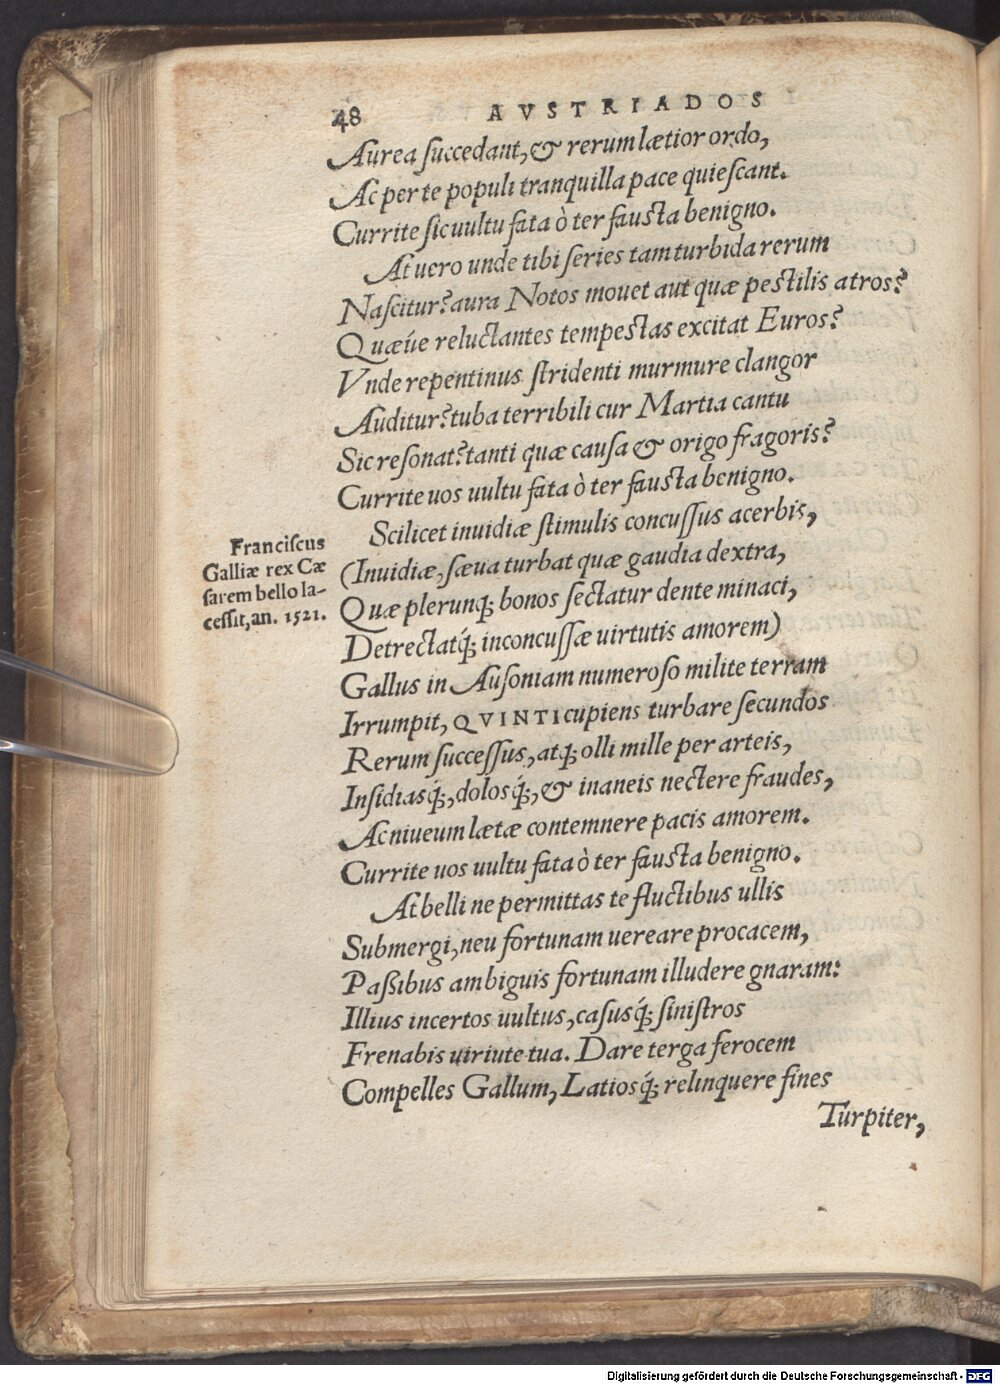 48 AVSTRIADOS
Aurea ſuccedant, & rerum lætior ordo,
Ac per te populi tranquilla pace quieſcant.
Currite ſic uultu fata ò ter fausta benigno.
At uero unde tibi ſeries tam turbida rerum
Naſcitur? aura Notos mouet aut quæ pestilis atros?
Quæúe reluctantes tempestas excitat Euros?
Vnde repentinus stridenti murmure clangor
Auditur? tuba terribili cur Martia cantu
Sic reſonat? tanti quæ cauſa & origo fragoris?
Currite uos uultu fata ò ter fausta benigno.
Scilicet inuidiæ ſtimulis concuſſus acerbis,
Franciſcus
Galliæ rex Cæ
ſarem bello la-
ceſſit, an. 1521.
(Inuidiæ, ſæua turbat quæ gaudia dextra,
Quæ plerunq; bonos ſectatur dente minaci,
Detrectatq́; inconcuſſæ uirtutis amorem)
Gallus in Auſoniam numeroſo milite terram
Irrumpit, QVINTI cupiens turbare ſecundos
Rerum ſucceſſus, atq; olli mille per arteis,
Inſidiasq́;, dolosq́;, & inaneis nectere fraudes,
Ac niueum lætæ contemnere pacis amorem.
Currite uos uultu fata ò ter fausta benigno.
At belli ne permittas te fluctibus ullis
Submergi, neu fortunam uereare procacem,
Paßibus ambiguis fortunam illudere gnaram:
Illius incertos uultus, caſusq́; ſiniſtros
Frenabis uirtute tua. Dare terga ferocem
Compelles Gallum, Latiosq́; relinquere fines
Turpiter,
Digitalisierung gefördert durch die Deutsche Forschungsgemeinschaft - DFG